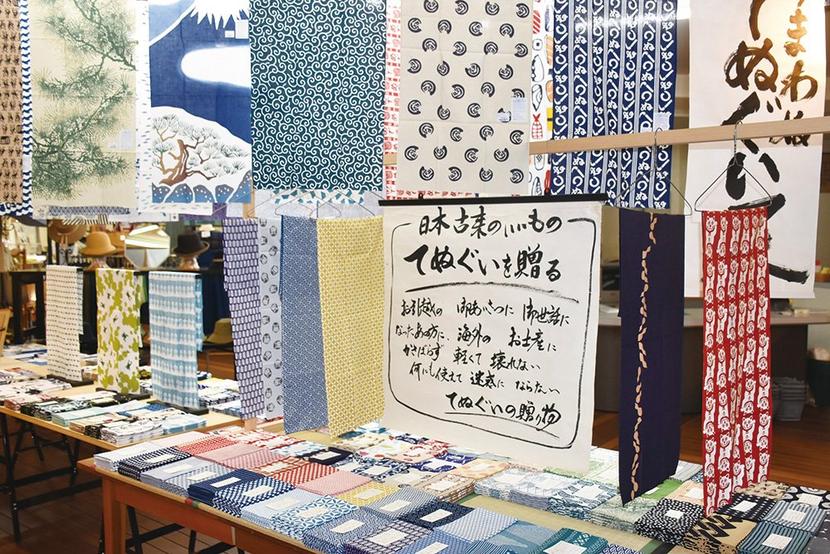 日本古来のいいもの
てぬぐいを贈る
お引越の ごあいさつに 御世話に
なったあの方に、海外の お土産に
かさばらず 軽くて 壊れない
何にも使えて 迷惑に ならない
てぬぐいの贈り物
まわぬ
てぬぐい